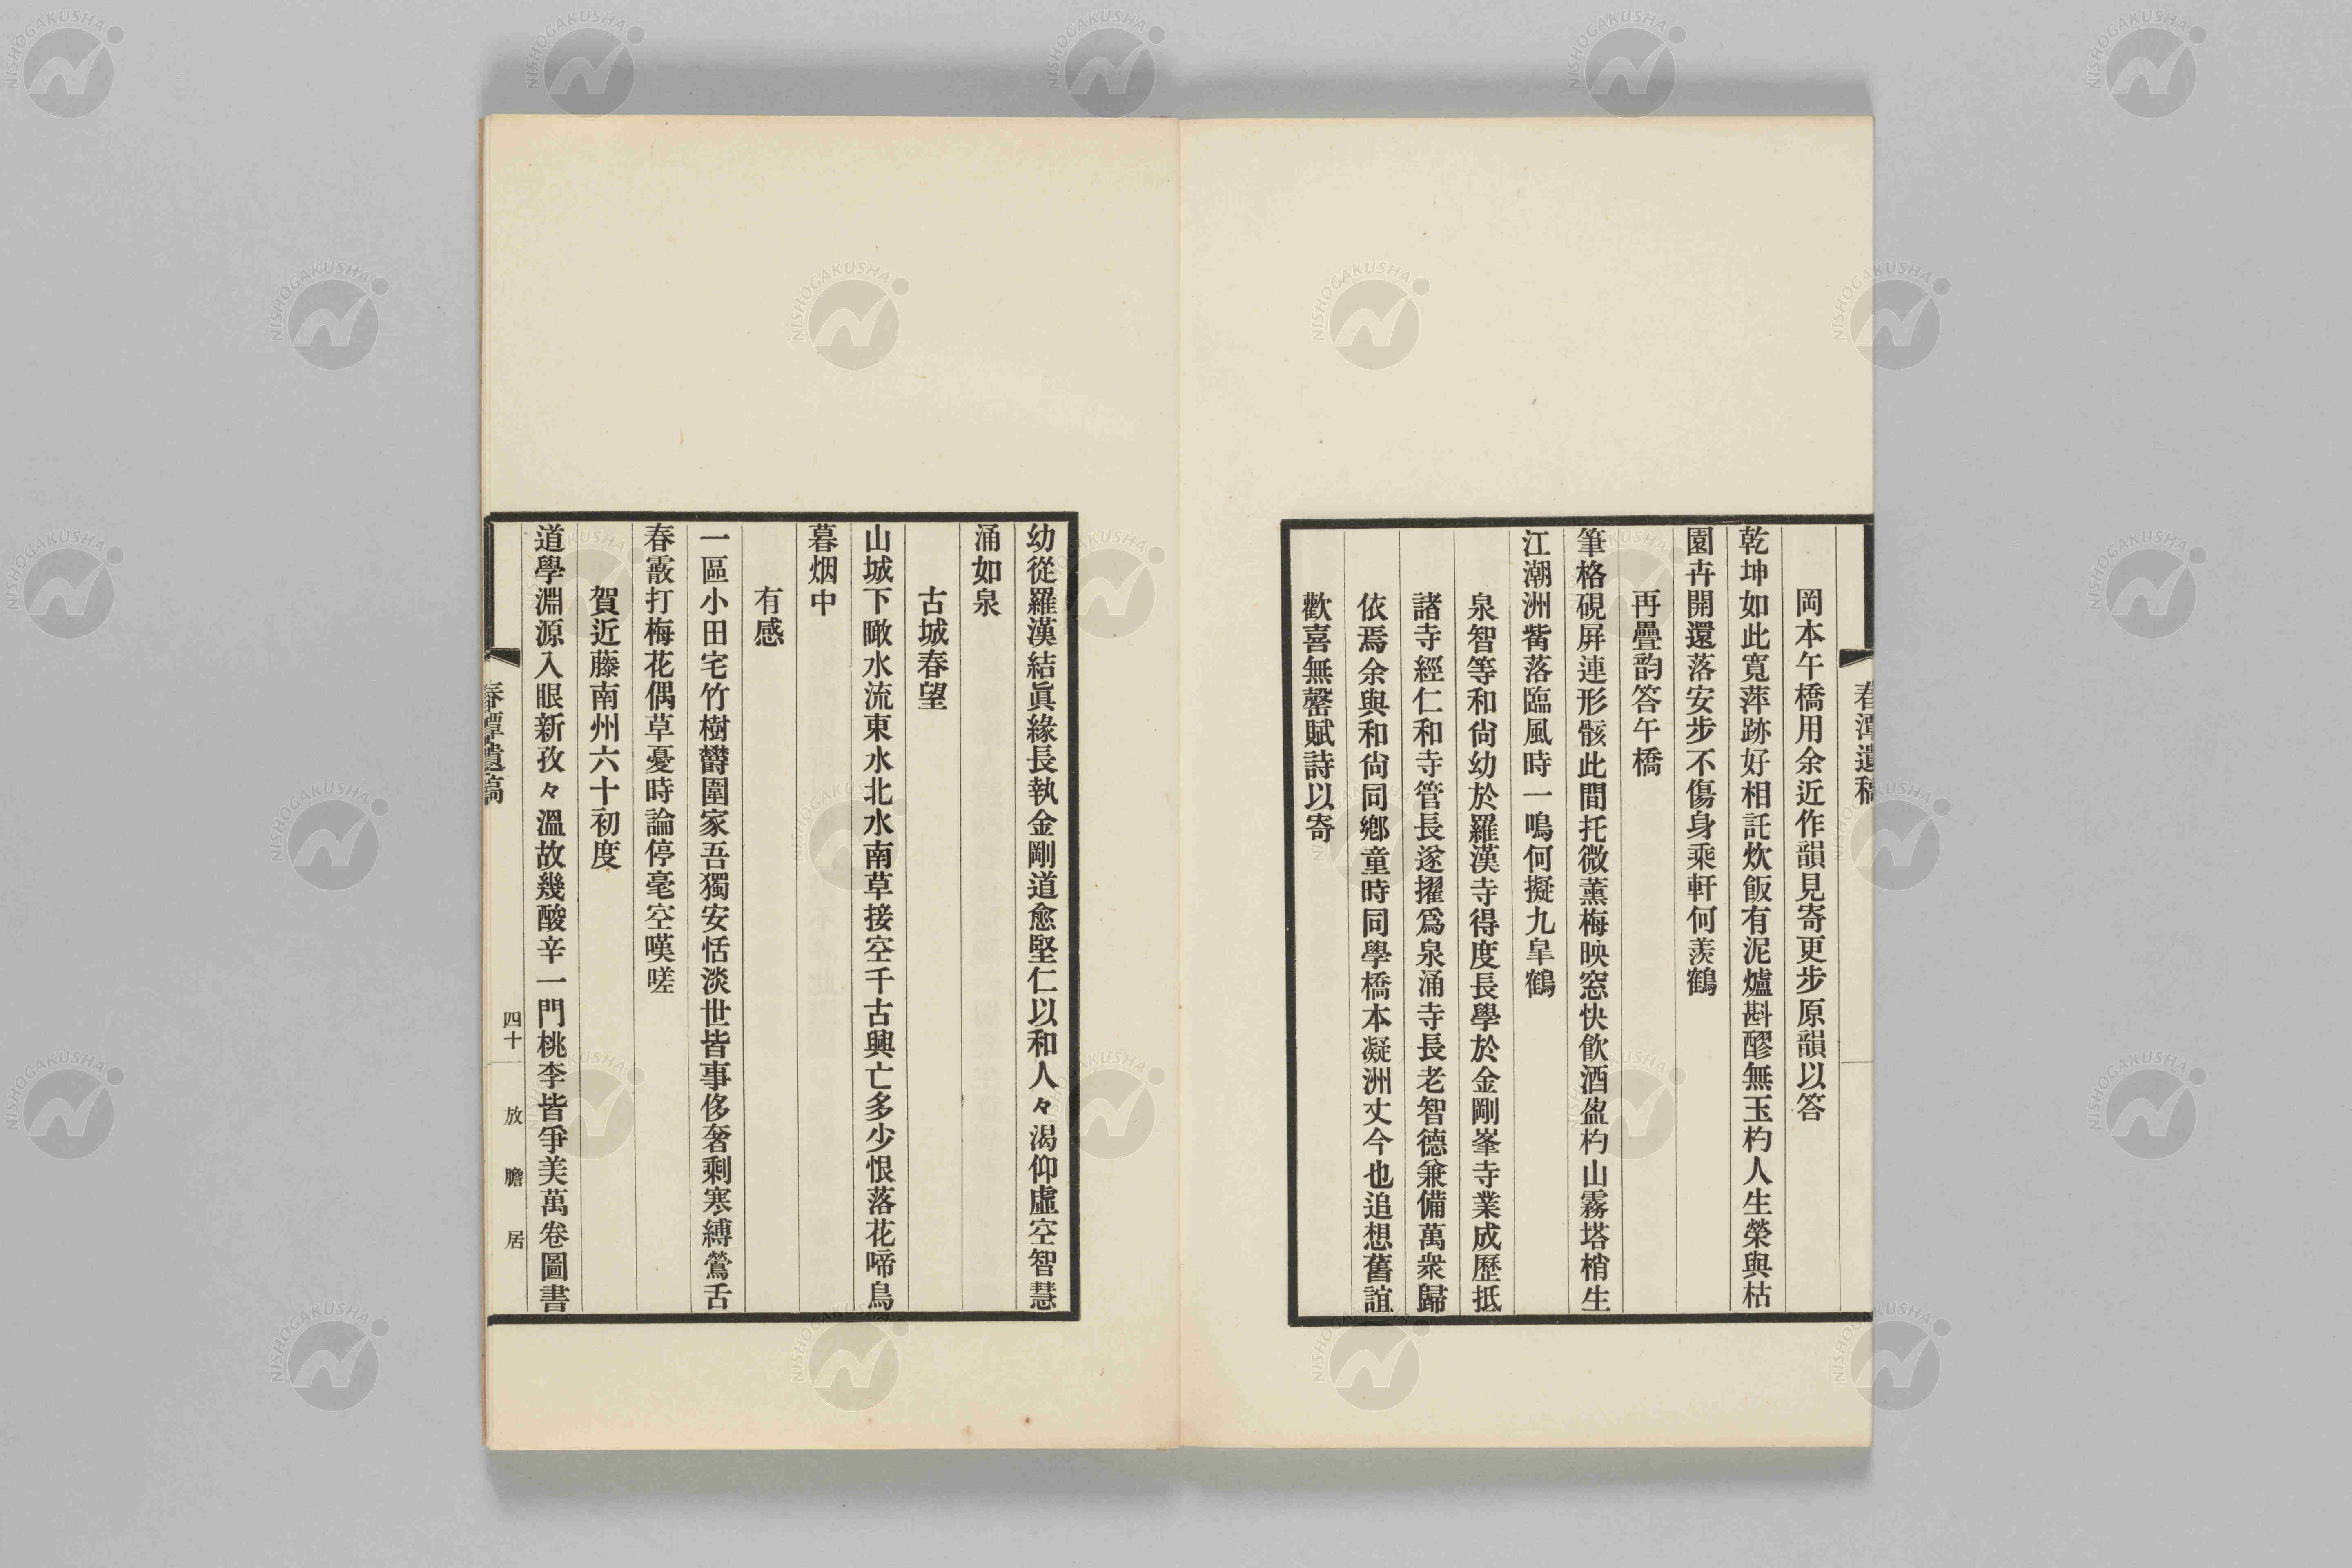 春潭遺稿
岡本午橋用余近作韻見寄更步原韻以答
乾坤如此寬萍跡好相託炊飯有泥爐斟醪無玉杓人生榮與枯
園卉開還落安步不傷身乘軒何羨鶴
再疊韵答午橋
筆格硯屛連形骸此間托微薰梅映窓快飮酒盈杓山霧塔梢生
江潮洲觜落臨風時一鳴何擬九皐鶴
泉智等和尙幼於羅漢寺得度長學於金剛峯寺業成歷抵
諸寺經仁和寺管長遂擢爲泉涌寺長老智德兼備萬衆歸
依焉余與和尙同鄕童時同學橋本凝洲丈今也追想舊誼
歡喜無罄賦詩以寄
幼從羅漢結眞緣長執金剛道愈堅仁以和人々渴仰虛空智慧
涌如泉
古城春望
山城下瞰水流東水北水南草接空千古興亡多少恨落花啼鳥
暮烟中
有感
一區小田宅竹樹欝圍家吾獨安恬淡世皆事侈奢剩寒縛鶯舌
春霰打梅花偶草憂時論停毫空嘆嗟
賀近藤南州六十初度
道學淵源入眼新孜々溫故幾酸辛一門桃李皆爭美萬卷圖書
春潭遺稿
四十
放膽居
NISHOGAKUSHA